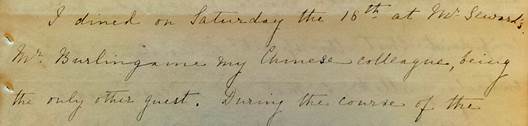 I dined on Saturday the 18th at Mr Seward's,
Mr. Burlingame my Chinese colleague, being
the only other guest. During the course of the